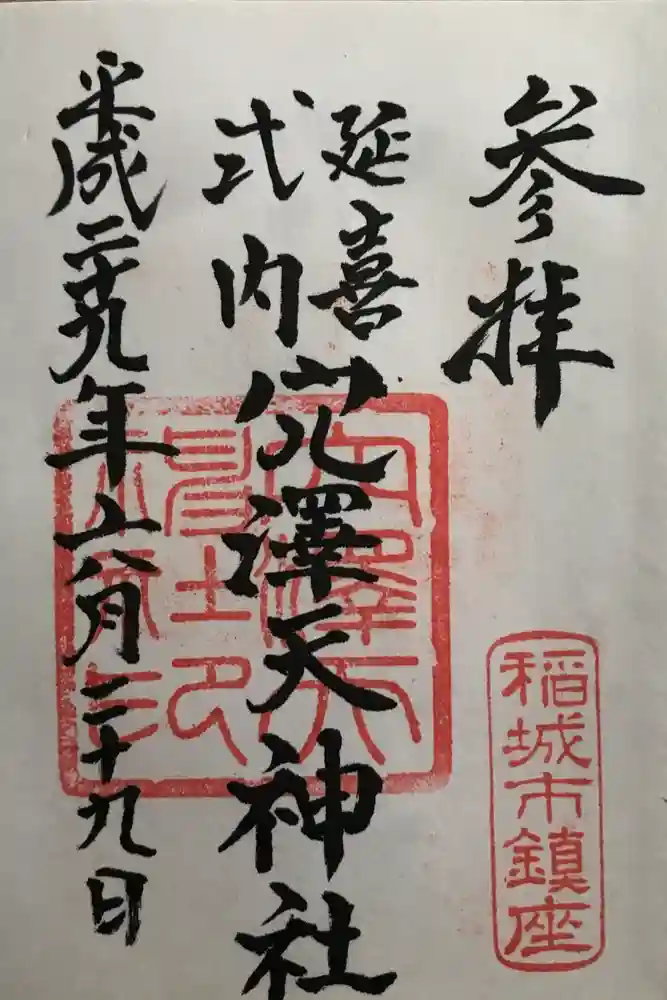 参拝
延喜
式内
穴澤天神社
平成二十九年六月二十九日
稲城市鎮座